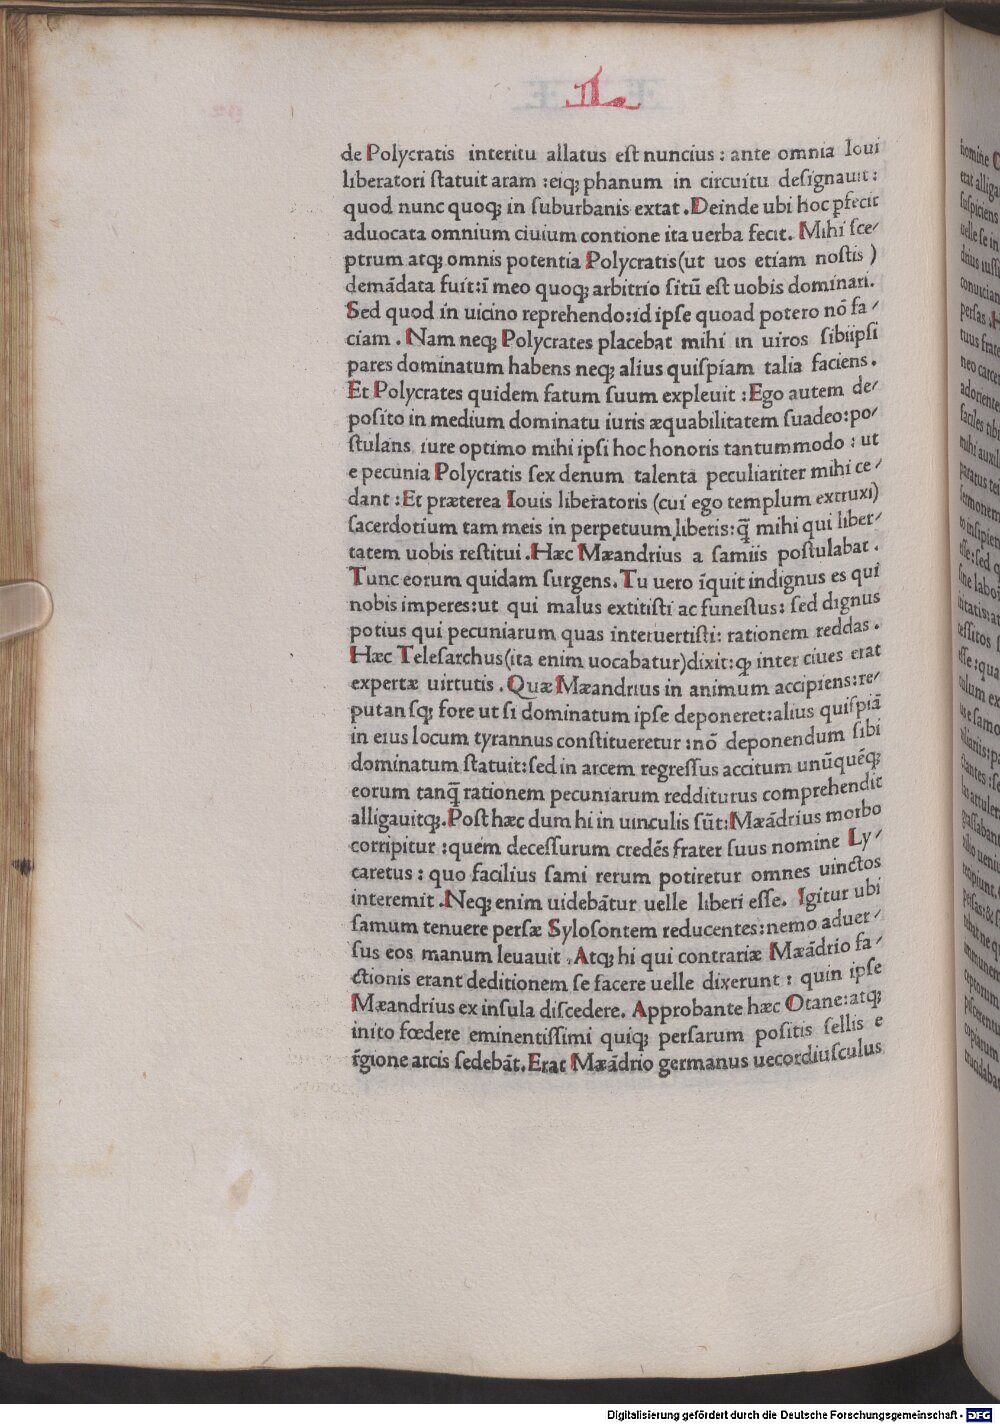 L
de Polycratis interitu allatus eſt nuncius : ante omnia Ioui
liberatori ſtatuit aram :eiqꝫ phanum in circuitu deſignauit:
quod nunc quoqꝫ in ſuburbanis extat .Deinde ubi hoc pfecit
aduocata omnium ciuium contione ita uerba fecit. Mihi ſce/
ptrum atqꝫ omnis potentia Polycratis(ut uos etiam noſtis )
demãdata fuit:ĩ meo quoqꝫ arbitrio ſitũ eſt uobis dominari.
Sed quod in uicino reprehendo:id ipſe quoad potero nõ fa/
ciam . Nam neqꝫ Polycrates placebat mihi in uiros ſibiipſi
pares dominatum habens neqꝫ alius quiſpiam talia faciens.
Et Polycrates quidem fatum ſuum expleuit :Ego autem de/
poſito in medium dominatu iuris æquabilitatem ſuadeo:po/
ſtulans iure optimo mihi ipſi hoc honoris tantummodo : ut
e pecunia Polycratis ſex denum talenta peculiariter mihi ce/
dant :Et præterea Iouis liberatoris (cui ego templum extruxi)
ſacerdotium tam meis in perpetuum liberis:q̃ mihi qui liber/
tatem uobis reſtitui .Hæc Mæandrius a ſamiis poſtulabat.
Tunc eorum quidam ſurgens. Tu uero ĩquit indignus es qui
nobis imperes:ut qui malus extitiſti ac funeſtus: ſed dignus
potius qui pecuniarum quas interuertiſti: rationem reddas.
Hæc Teleſarchus(ita enim uocabatur)dixit:qꝫ inter ciues erat
expertæ uirtutis .Quæ Mæandrius in animum accipiens:re/
putanſqꝫ fore ut ſi dominatum ipſe deponeret:alius quiſpiã
in eius locum tyrannus conſtitueretur :nõ deponendum ſibi
dominatum ſtatuit:ſed in arcem regreſſus accitum unũquẽqꝫ
eorum tanq̃ rationem pecuniarum redditurus comprehendit
alligauitqꝫ.Poſt hæc dum hi in uinculis ſũt:Mæãdrius morbo
corripitur :quem deceſſurum credẽs frater ſuus nomine Ly/
caretus : quo facilius ſami rerum potiretur omnes uinctos
interemit .Neqꝫ enim uidebãtur uelle liberi eſſe. Igitur ubi
ſamum tenuere perſæ Syloſontem reducentes:nemo aduer/
ſus eos manum leuauit .Atqꝫ hi qui contrariæ Mæãdrio fa/
ctionis erant deditionem ſe facere uelle dixerunt : quin ipſe
Mæandrius ex inſula diſcedere. Approbante hæc Otane:atqꝫ
inito fœdere eminentiſſimi quiqꝫ perſarum poſitis ſellis e
r̃gione arcis ſedebãt.Erat Mæãdrio germanus uecordiuſculus
Digitalisierung gefördert durch die Deutsche Forschungsgemeinschaft - DFG